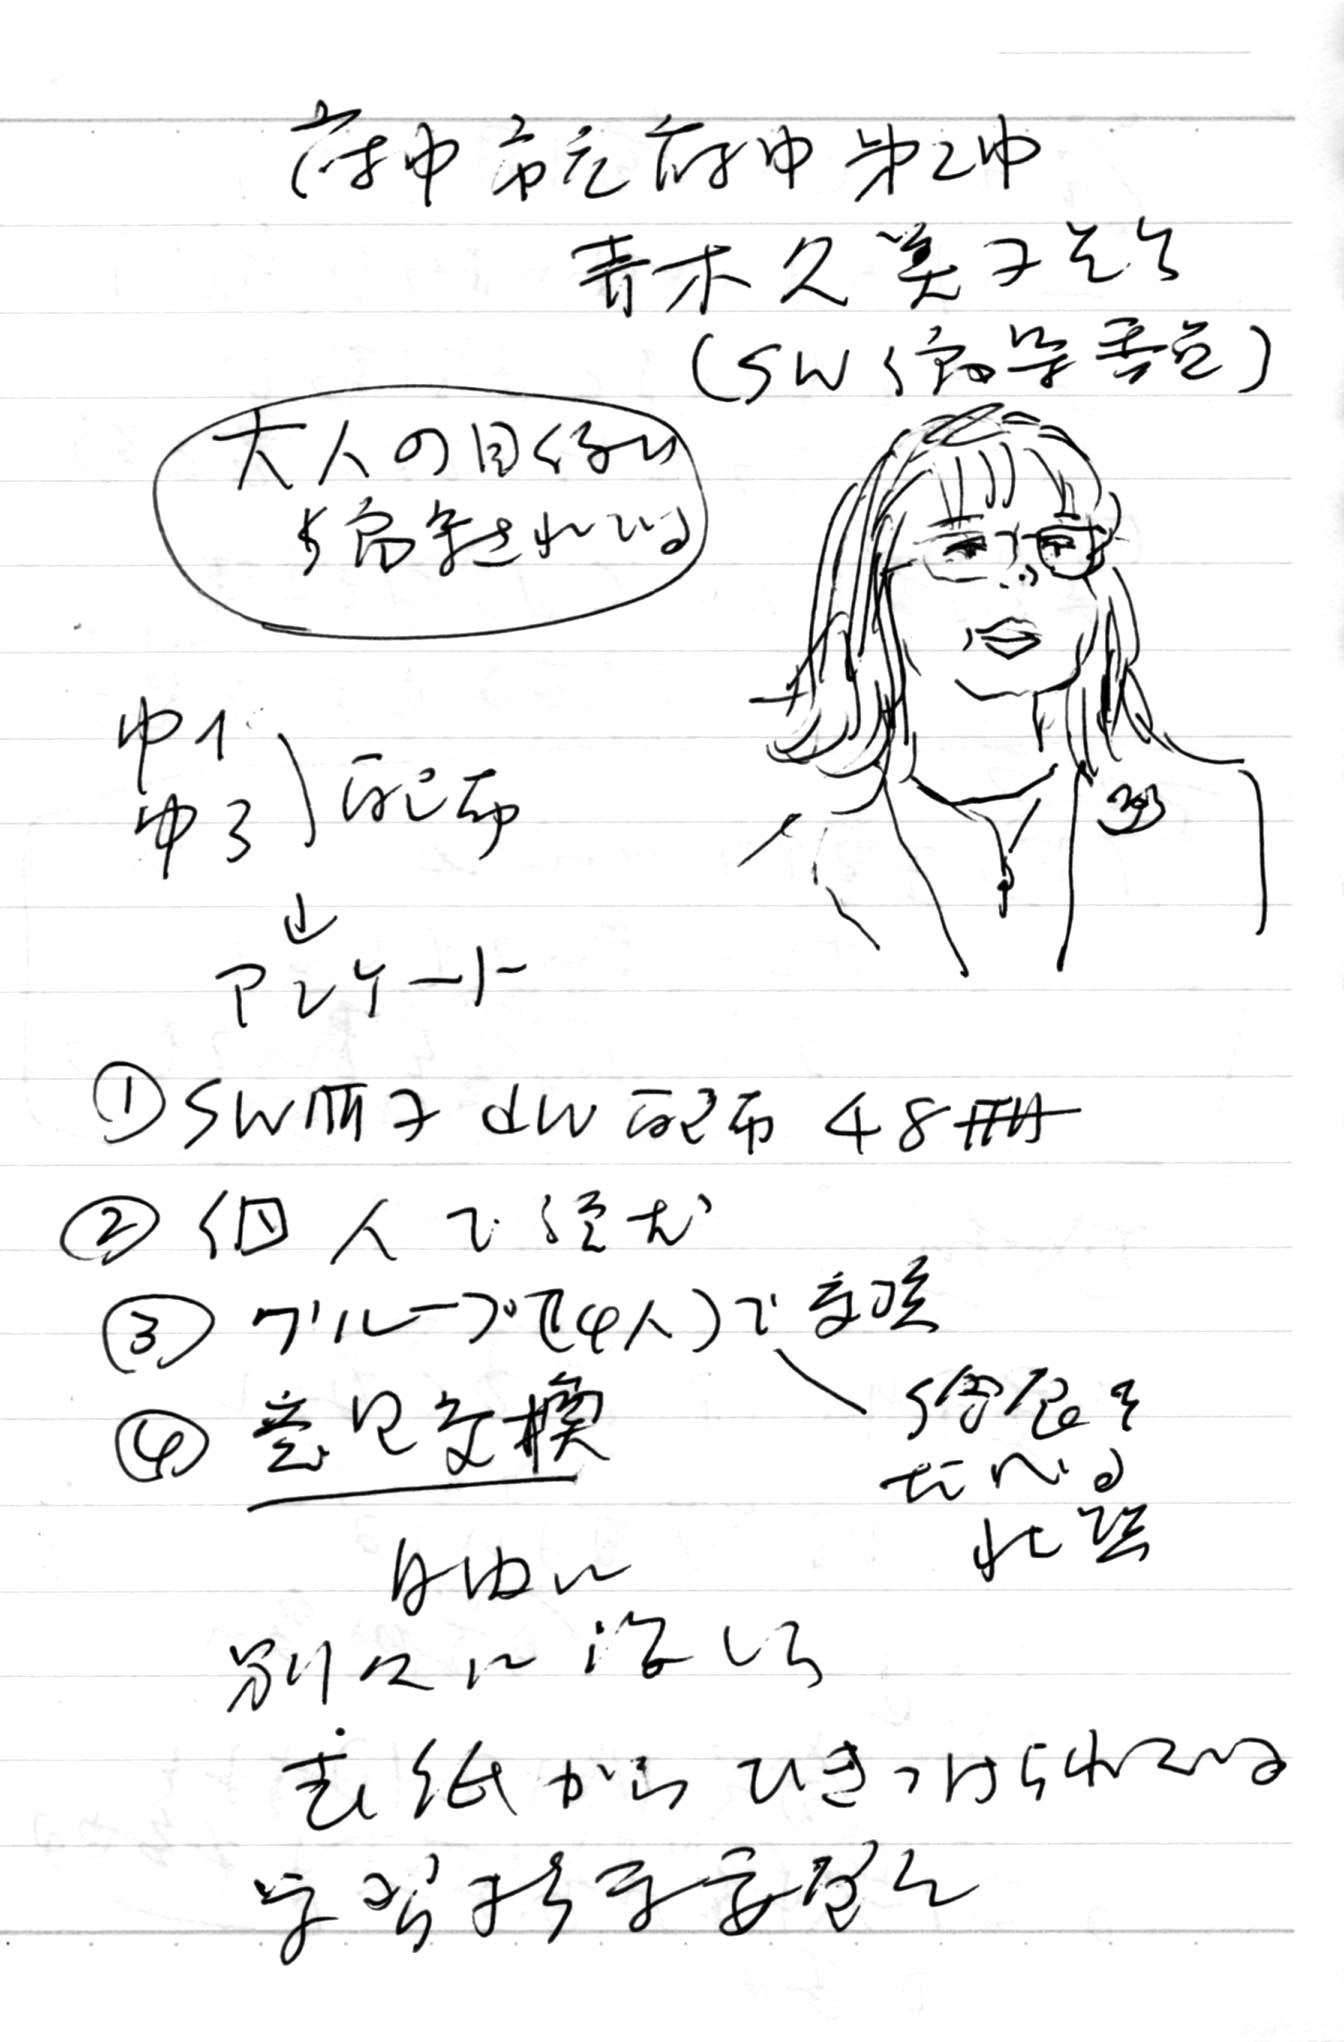 府中市立府中第2中
青木久美子先生
(SW編集委員)
大人の目線で
編集されている
中1
中3
配布
↓
アンケート
① SW冊子 dW配布 48冊
② 個人で読む
③ グループ(4人)で音読
給食を
たべる
④ 意見交換
自由に
別々に話し
表紙からひきつけられている
学習指導要領